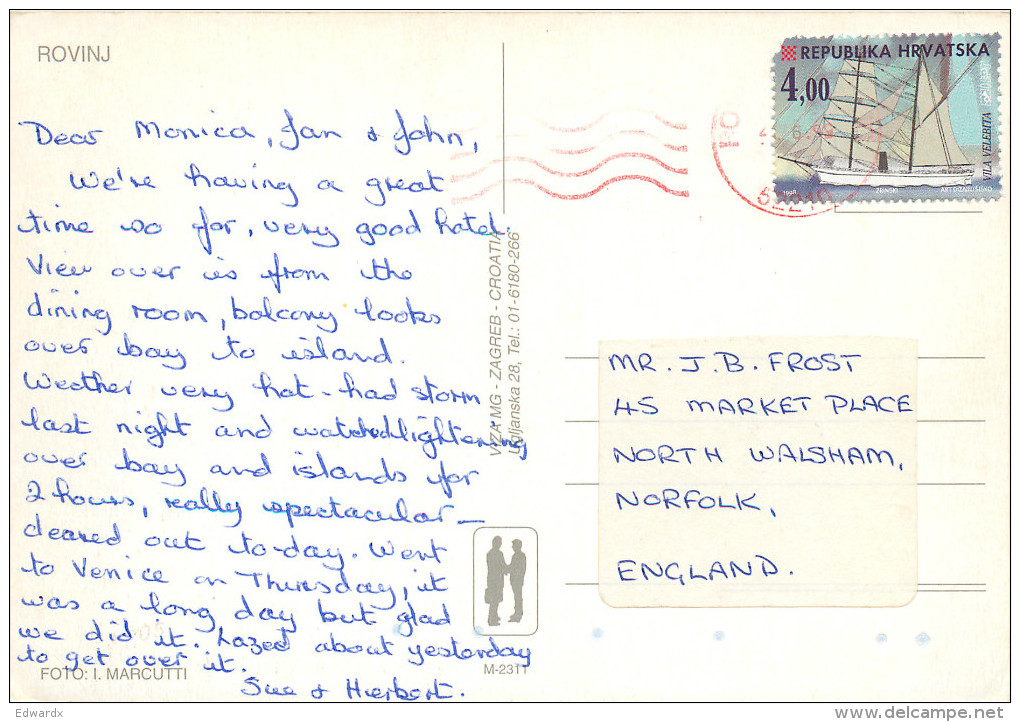 ROVINJ
Dear Monica, Jan & John,
We're having a great
time so far, very good hotel.
View over us from the
dining room, balcony looks
over bay to island.
Weather very hot - had storm
last night and watched lightening
over bay and islands for
2 hours, really spectacular -
cleared out to-day. Went
to Venice on Thursday, it
was a long day but glad
we did it. Lazed about yesterday
to get over it.
Sue & Herbert.
FOTO: I. MARCUTTI
VIZA MG - ZAGREB - CROATIA
28, Tel.: 01-6180-266
M-2311
REPUBLIKA HRVATSKA
4,00
VILA VELEBITA
1998
ZRINSKI
52210
MR. J.B. FROST
45 MARKET PLACE
NORTH WALSHAM,
NORFOLK,
ENGLAND.
Edwardx
www.delcampe.net